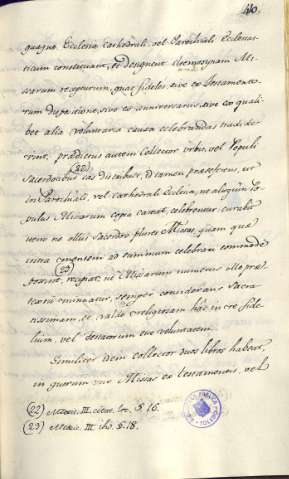 410
quaque Ecclesia Cathedrali, vel Parochiali Ecclesias-
ticum constituant, et designent Eleemosynam Mi-
ssarum recepturum, quas fideles, sive ex testamento-
rum dispositione, sive ex anniversariis, sive ex quali-
bet alia voluntaria causa celebrandas tradide-
rint, prædictus autem Collector Urbis, vel Populi
(22)
Sacerdotibus eas distribuet, id tamen præstet, ut
in Parochiali, vel Cathedrali Ecclesia, ne aliquis Po-
pulus Missarum copia careat, celebrentur, curabit
item ne ulli Sacerdoti plures Missas, quam quæ
intra mensem ad summum celebrari commode
(23)
poterint, recipiat, ne Missarum numerus illo præ-
textu minuatur, semper considerans Sacra-
tissimam, ac valde religiosam hac in re fide-
lium, vel testatorum esse voluntatem.
Similiter idem collector duos libros habeat,
in quorum uno Missas ex testamentis, vel
(22) Mexic. III. §. 16.
(23) Mexic. III. ibi. §. 18.